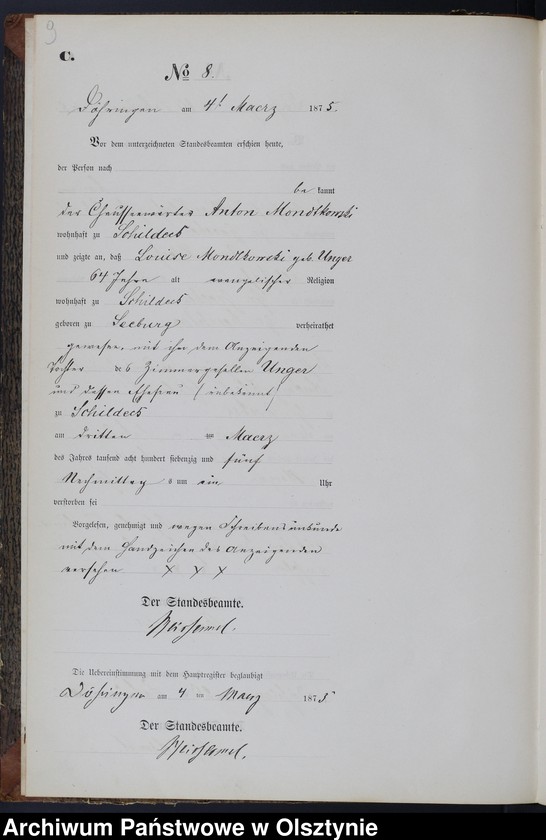 9
C.
No 8.
Döhringen am 4t Maerz 1875.
Vor dem unterzeichneten Standesbeamten erschien heute,
der Person nach
be kannt
der Chausseewärter Anton Mondtkowski
wohnhaft zu Schildeck
und zeigte an, daß Louise Mondtkowski geb. Unger
64 Jahre alt evangelischer Religion
wohnhaft zu Schildeck
geboren zu Seeburg verheirathet
gewesen, mit ihm dem Anzeigenden
Tochter des Zimmergesellen Unger
und dessen Ehefrau (unbekannt)
zu Schildeck
am dritten Maerz
des Jahres tausend acht hundert siebenzig und fünf
Nachmittag s um ein Uhr
verstorben sei
Vorgelesen, genehmigt und wegen Schreibensunkunde
mit dem Handzeichen des Anzeigenden
versehen X X X
Der Standesbeamte.
Die Uebereinstimmung mit dem Hauptregister beglaubigt
Döhringen am 4 ten Maerz 1875
Der Standesbeamte.
Archiwum Państwowe w Olsztynie